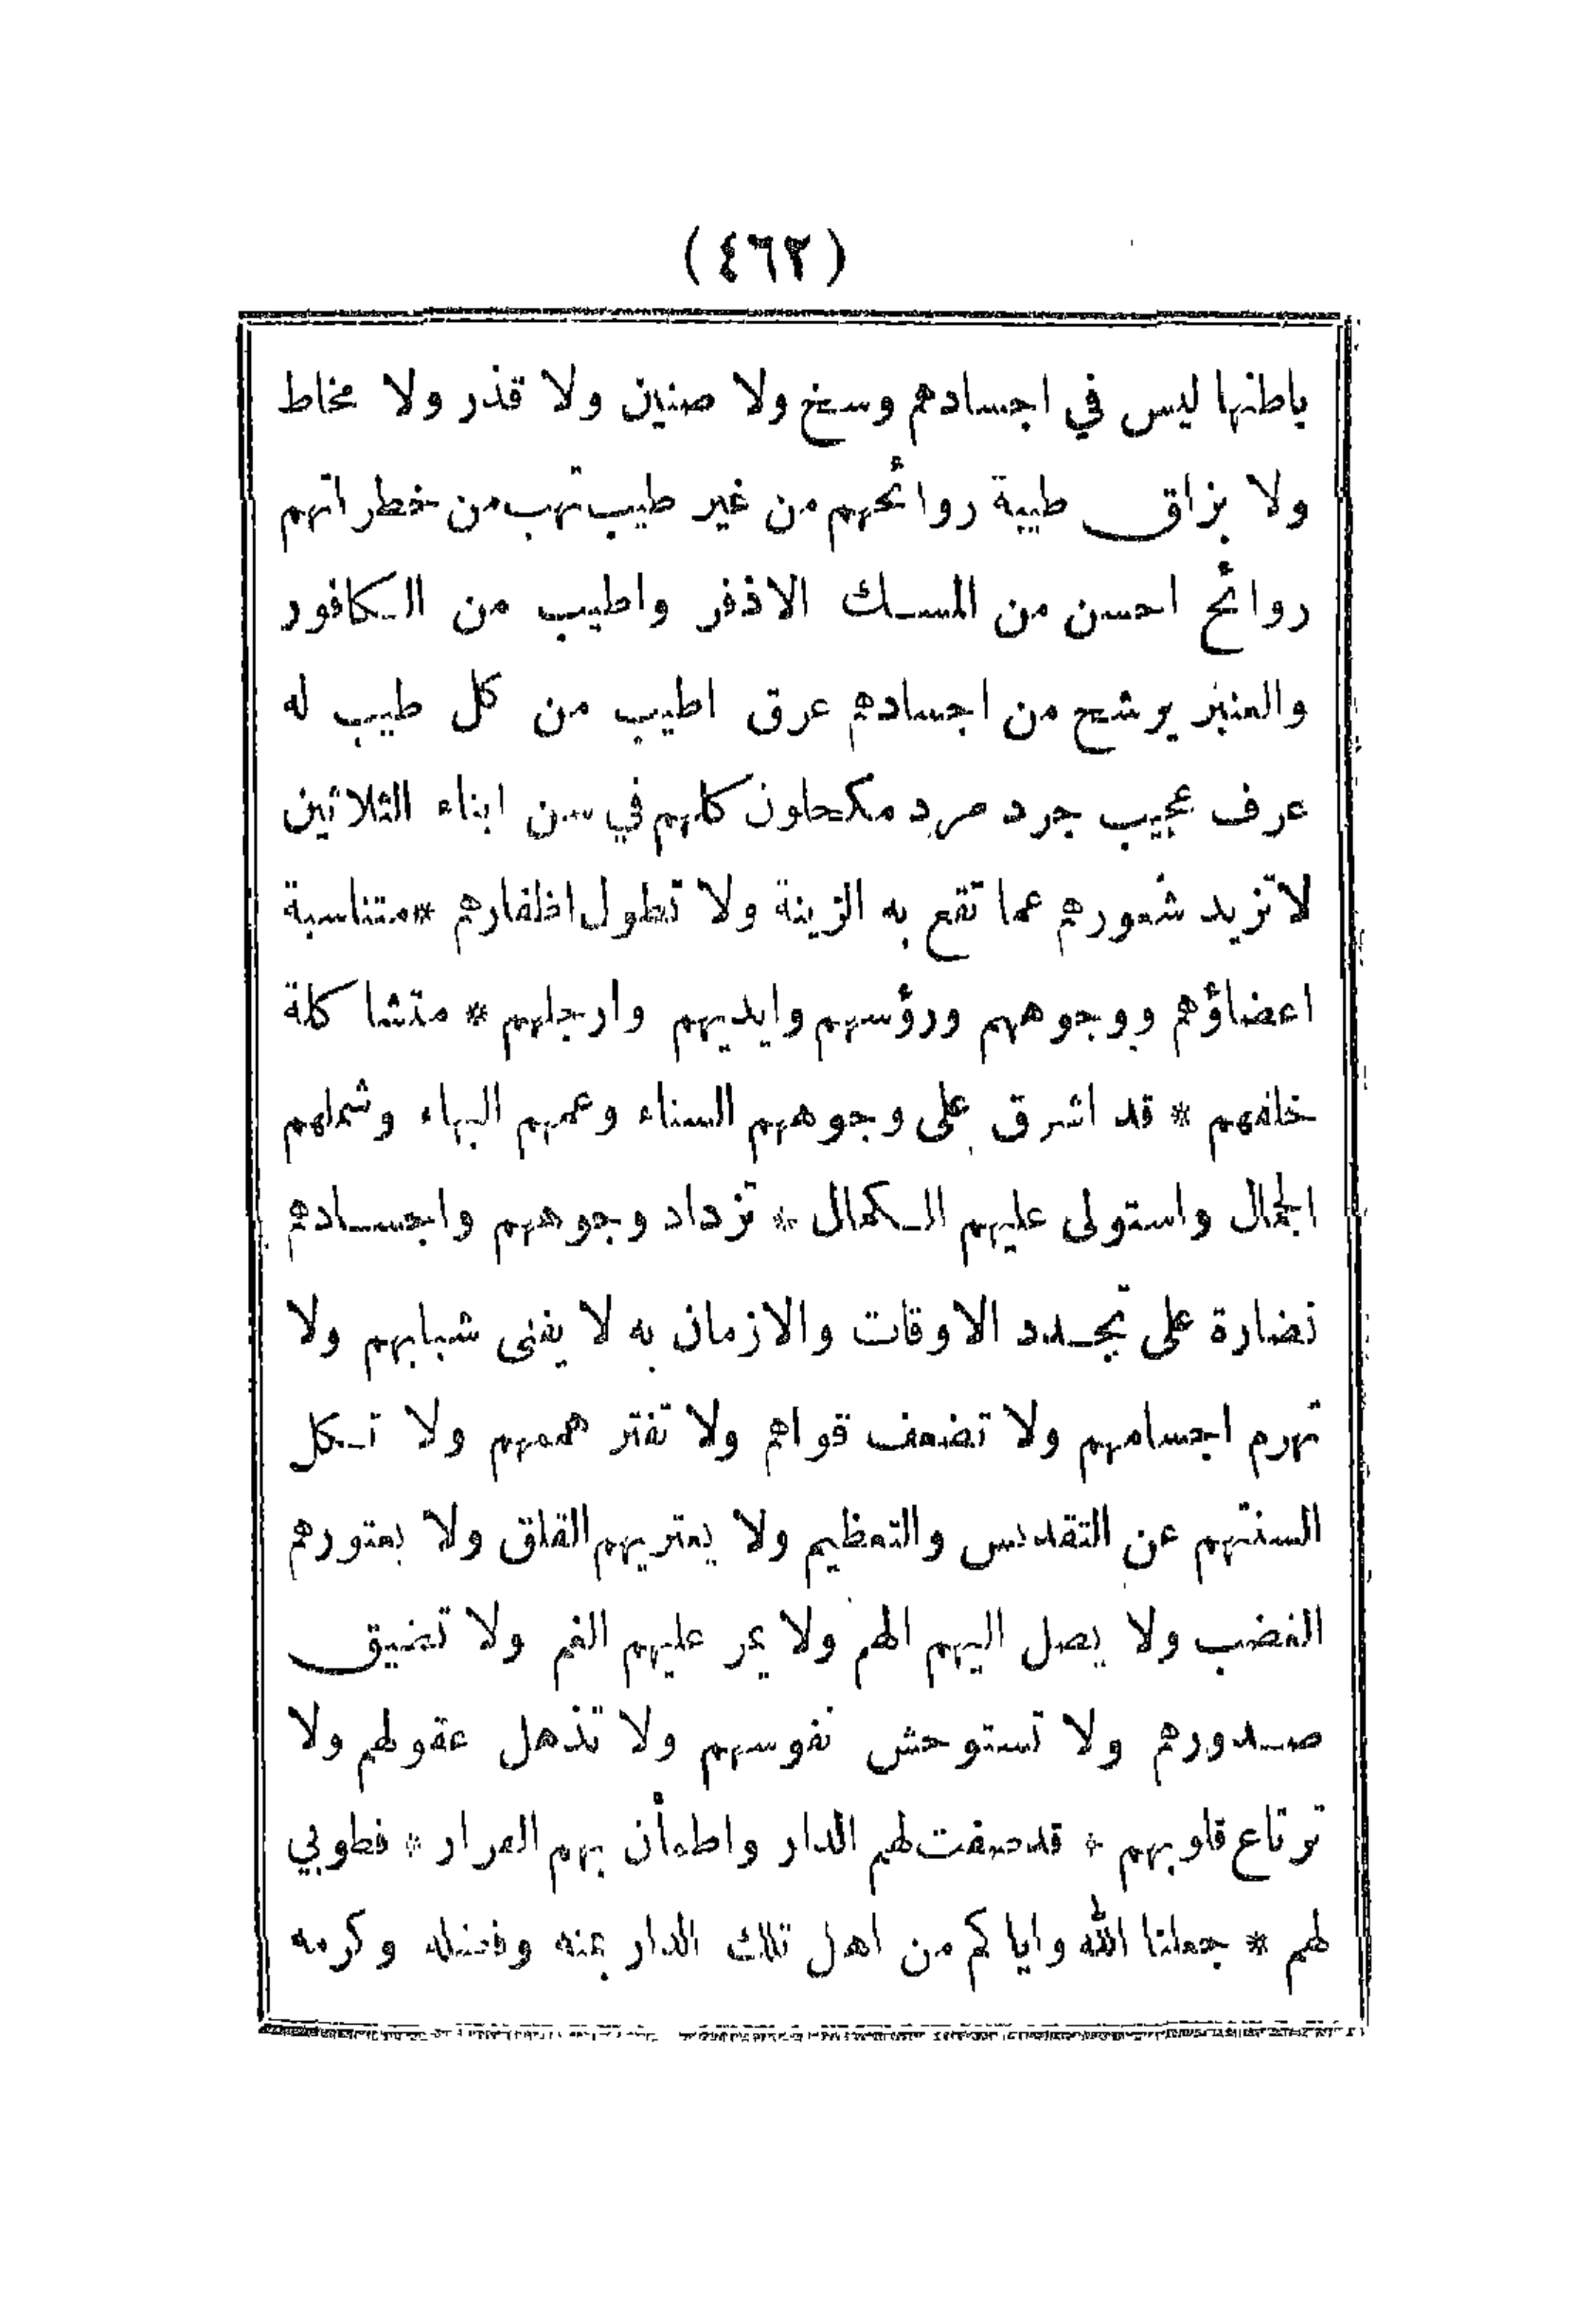 (٤٦٢)
باطنها ليس في اجسادهم وسخ ولا صنين ولا قذر ولا مخاط
ولا بزاق طيبة روائحهم من غير طيب تهب من خطراتهم
روائح احسن من المسك الاذفر واطيب من الكافور
والعنبر يرشح من اجسادهم عرق اطيب من كل طيب له
عرف عجيب جرد مرد مكحلون كلهم في سن ابناء الثلاثين
لا تزيد شعورهم عما تقع به الزينة ولا تطول اظفارهم * متناسبة
اعضاؤهم ووجوههم ورؤسهم وايديهم وارجلهم * متشاكلة
خلقهم * قد اشرق على وجوههم السناء وعمهم البهاء وشملهم
الجمال واستولى عليهم الكمال * تزداد وجوههم واجسادهم
نضارة على تجدد الاوقات والازمان به لا يفنى شبابهم ولا
تهرم اجسامهم ولا تضعف قواهم ولا تفتر هممهم ولا تكل
السنتهم عن التقديس والتعظيم ولا يعتريهم القلق ولا يعتورهم
الغضب ولا يصل اليهم الهم ولا يمر عليهم الغم ولا تضيق
صدورهم ولا تستوحش نفوسهم ولا تذهل عقولهم ولا
ترتاع قلوبهم * قد صفت لهم الدار واطمأن بهم القرار * فطوبي
لهم * جعلنا الله واياكم من اهل تلك الدار بمنه وفضله وكرمه